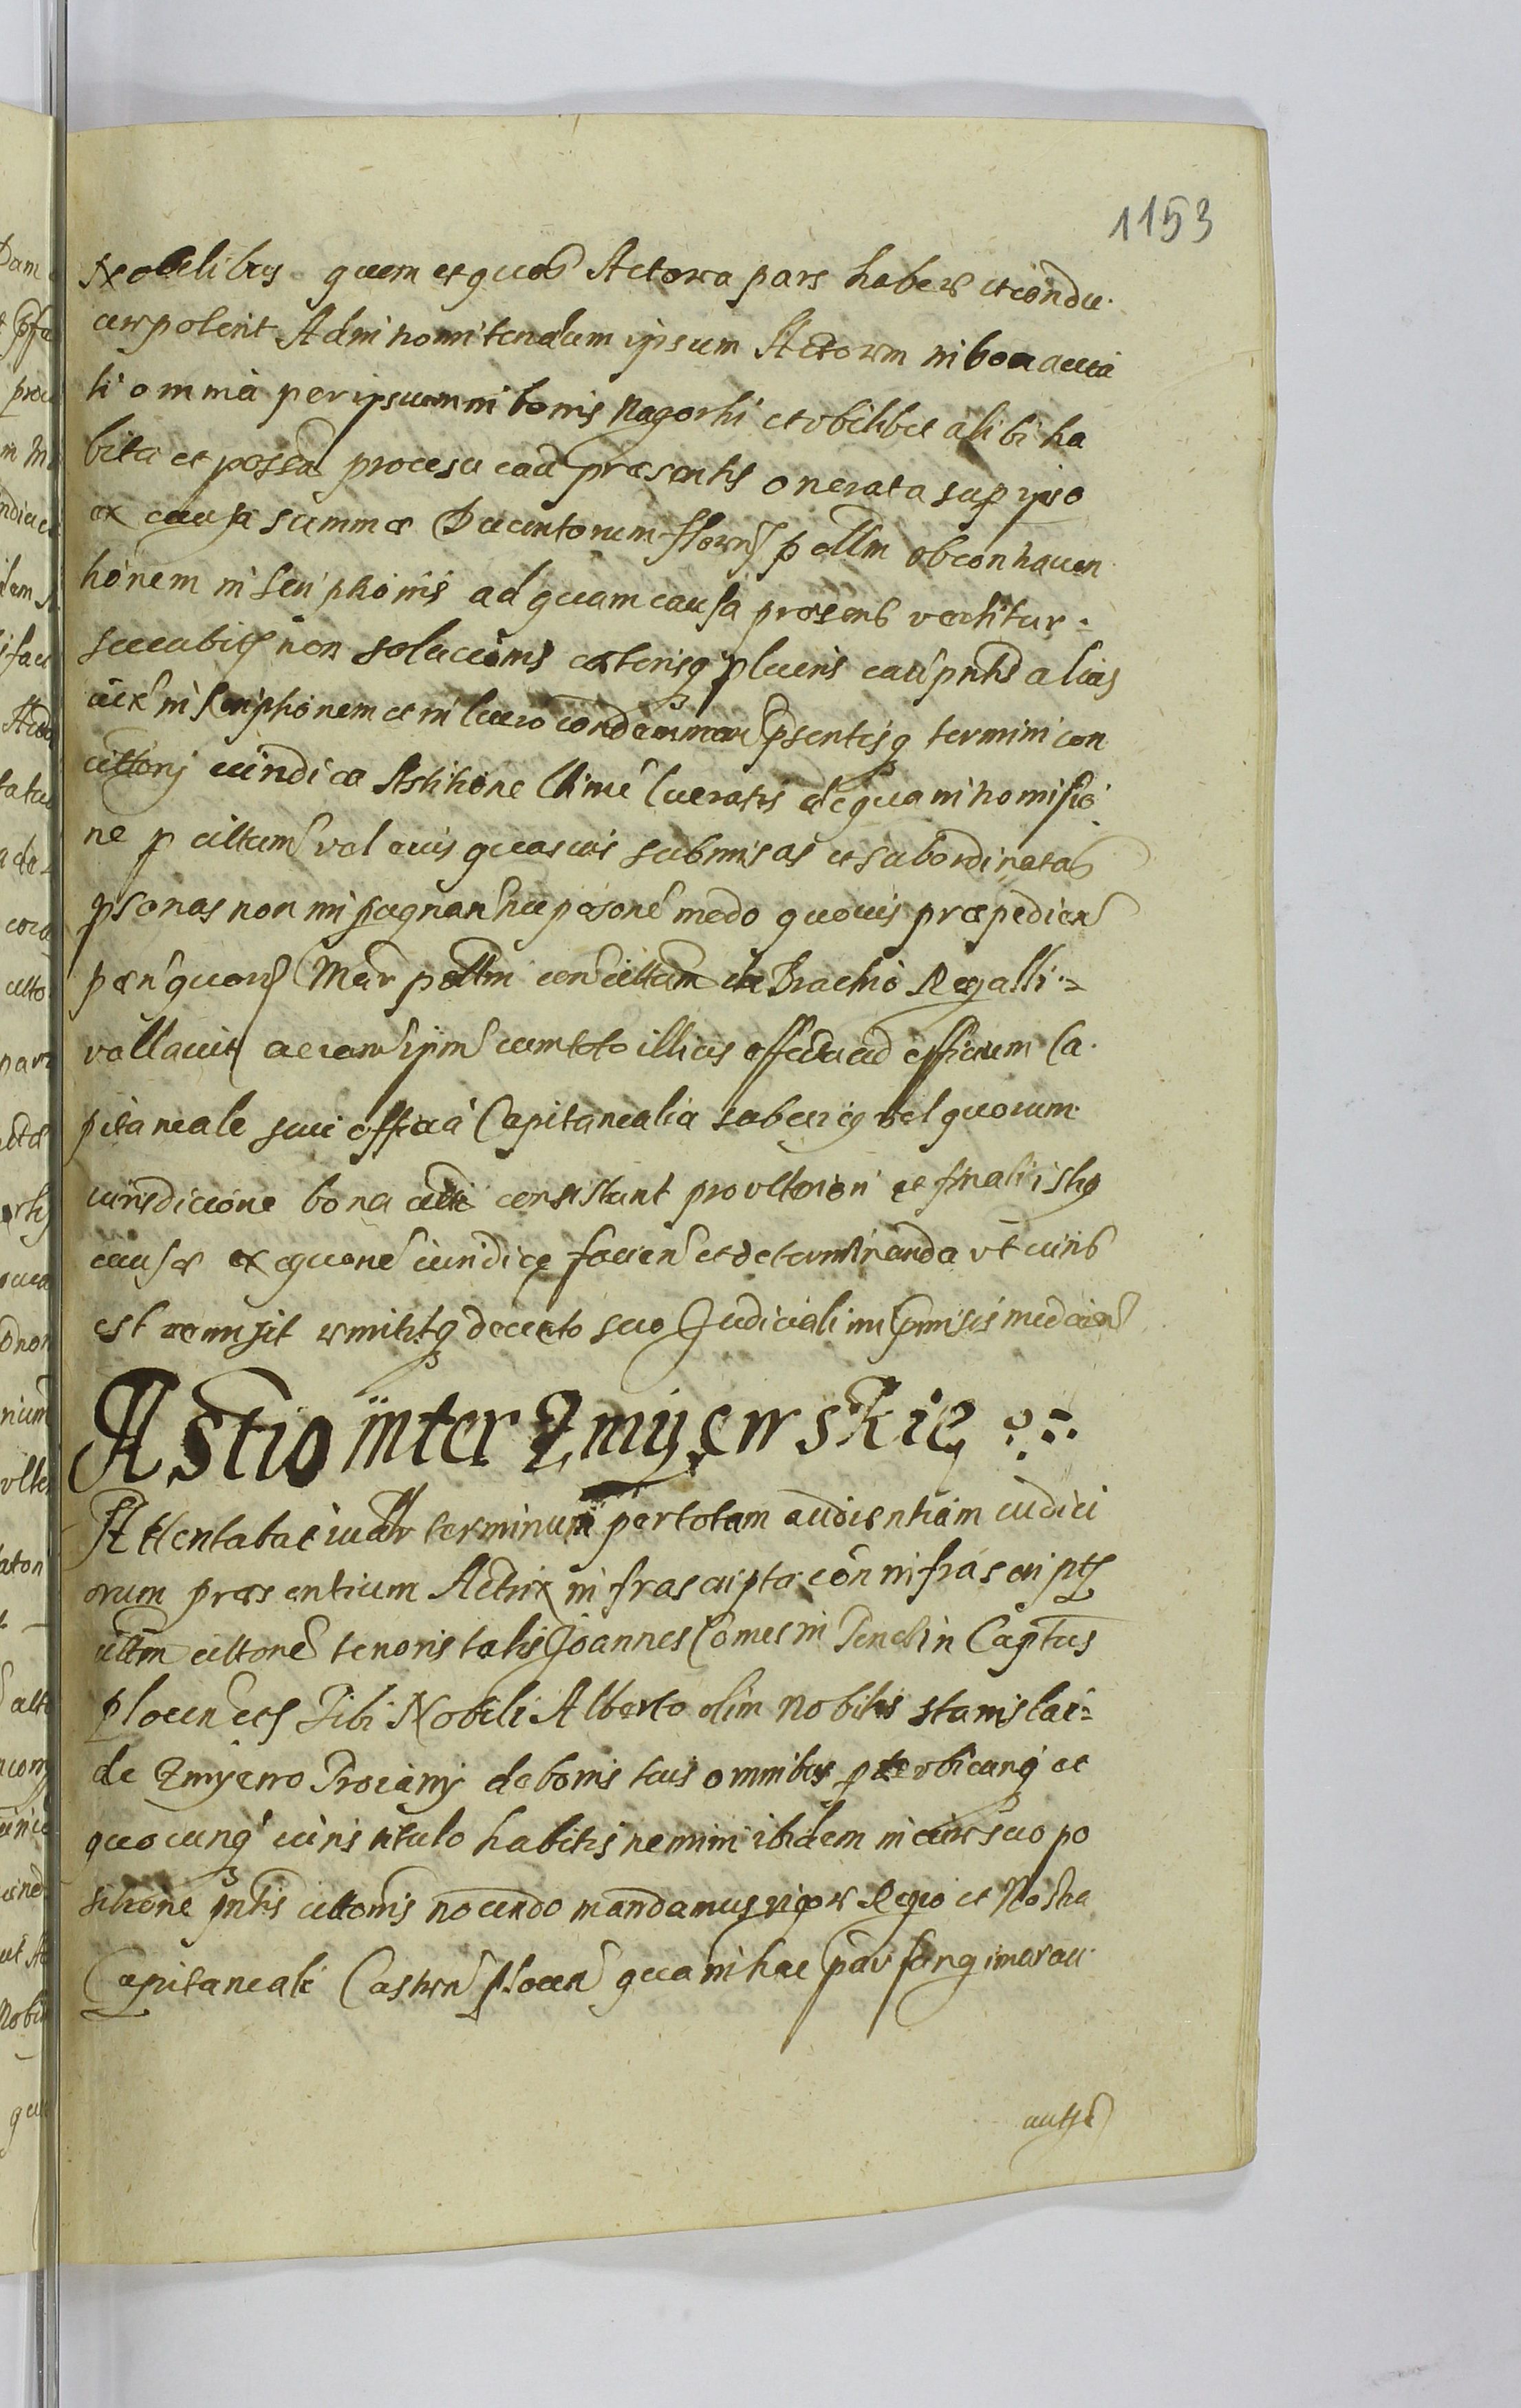 1153
Nobilibus quem et quos Actorea pars habere et condu
cere poterit Ad intromittendum ipsum Actorem in bona citati
ti omnia per ipsum in bonis Nagorki et ubilibet alibi ha
bita et possessa processu eaū praesentis onerata sup ipso
ex causa summae Ducentorum florenos p attm ob contraven
tionem inscriptionis ad quam causa praesens vertitur
succubitas non solucionis caeterisq pluris caū pntis alias
iuxta inscriptionem et in lucro condemnare psentisq termini con
cittorij iuridicae Astitione lucratis de qua intromissio
ne p cittum vel eius quasvis submissas et subordinatas
psonas non impugnan nec psone modo quovis praepedien
paen quor Mar pollm concittam de Brachio Regalli
vallavit ac eam ipm cum toto illius effectu ad officium Ca
pitaneale seu officia Capitanealia sub cuius vel quorum
iurisdicione bona citti consistunt pro ulteriori et finali istiq
causae exequcione iuridice facien et determinanda ut iuris
est remisit remittitq decreto suo Judiciali in praemissis median
Astio inter Zmijewskie
Attentabat iudr terminum per totam audientiam iudici
orum praesentium Actrix infrascripta con infrascripts
cittm cittone tenoris talis Joannes Comes in Tenchin Captus
plocen ets Tibi Nobili Alberto olim Nobilis Stanislai
de Zmijewo Trociany de bonis tuis omnibus pter ubicunq et
quocunq iuris titulo habitis nemini ibidem in iure suo po
sitione pntis cittonis nocendo mandamus rigore Regio et Nostra
Capitaneali Castren plocen qua in hac par fungimur au
autho